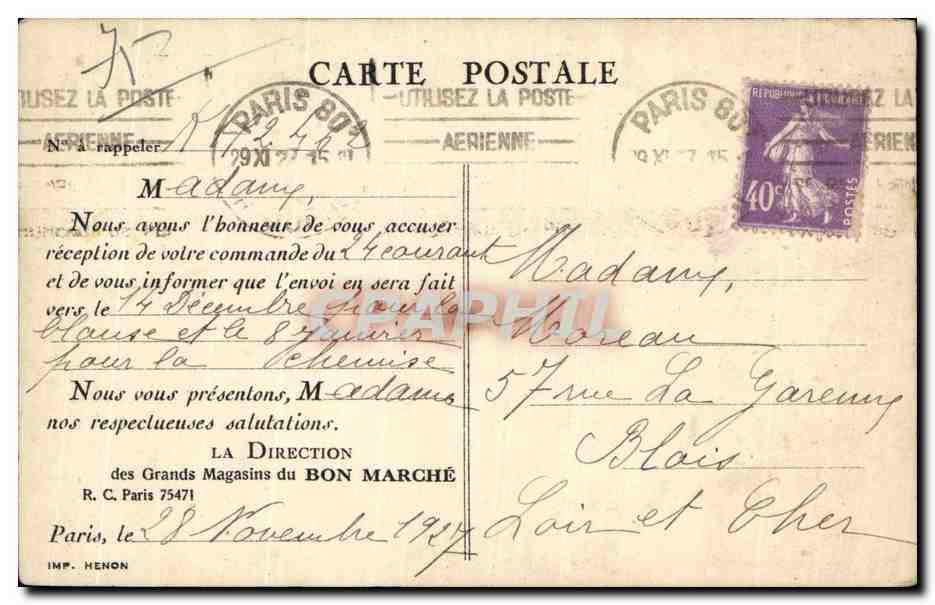 CARTE POSTALE
UTILISEZ LA POSTE
AERIENNE
PARIS 80
UTILISEZ LA POSTE
AERIENNE
PARIS 80
AERIENNE
REPUBLIQUE FRANÇAISE
40c
POSTES
Nº à rappeler
Madame,
Nous avons l'honneur de vous accuser
réception de votre commande du 24 courant
et de vous informer que l'envoi en sera fait
vers le 14 Décembre pour la
blouse et le 8 Janvier
pour la chemise
Nous vous présentons, Madame
nos respectueuses salutations.
LA DIRECTION
des Grands Magasins du BON MARCHÉ
R. C. Paris 75471
Paris, le 28 Novembre 1927
IMP. HENON
Madame,
Moreau
57 rue La Garenne
Blois
Loir et Cher
CPAPHIL